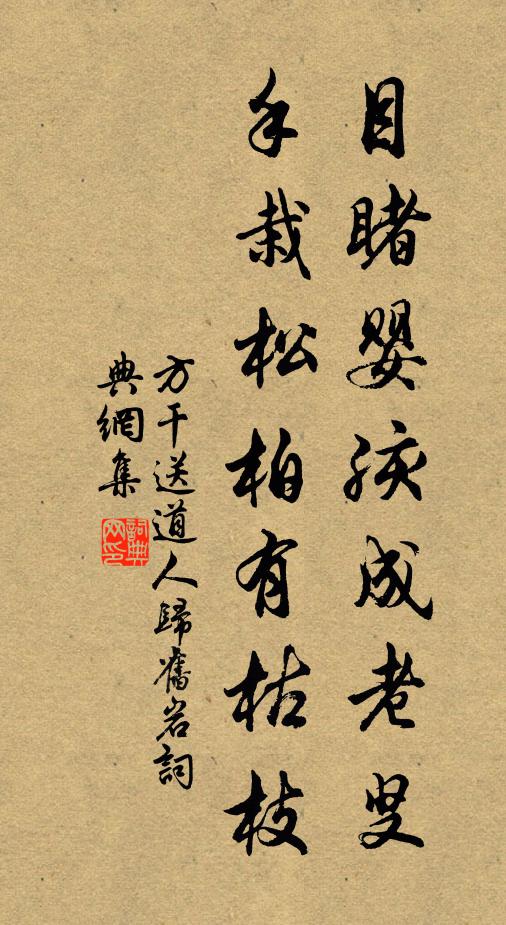 目睹嬰孩成老叟
手栽松柏有枯枝
方干送道人歸舊岩詞
典網集
詞典
网印